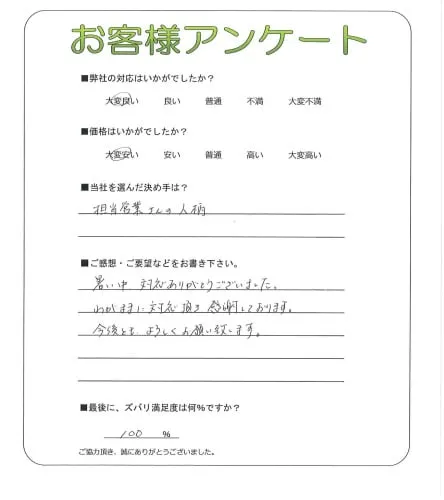 お客様アンケート
■弊社の対応はいかがでしたか？
大変良い 良い 普通 不満 大変不満
■価格はいかがでしたか？
大変安い 安い 普通 高い 大変高い
■当社を選んだ決め手は？
担当営業さんの人柄
■ご感想・ご要望などをお書き下さい。
暑い中、対応ありがとうございました。
わがままに対応頂き感謝しております。
今後とも、よろしくお願い致します。
■最後に、ズバリ満足度は何％ですか？
100 ％
ご協力頂き、誠にありがとうございました。